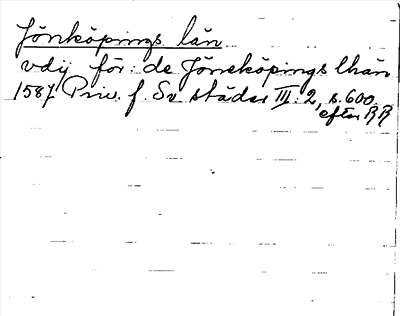 Jönköpings län
vdij för: de Jöneköpings lhän
1587 Priv. f. Sv städer III: 2, s. 600
efter RR